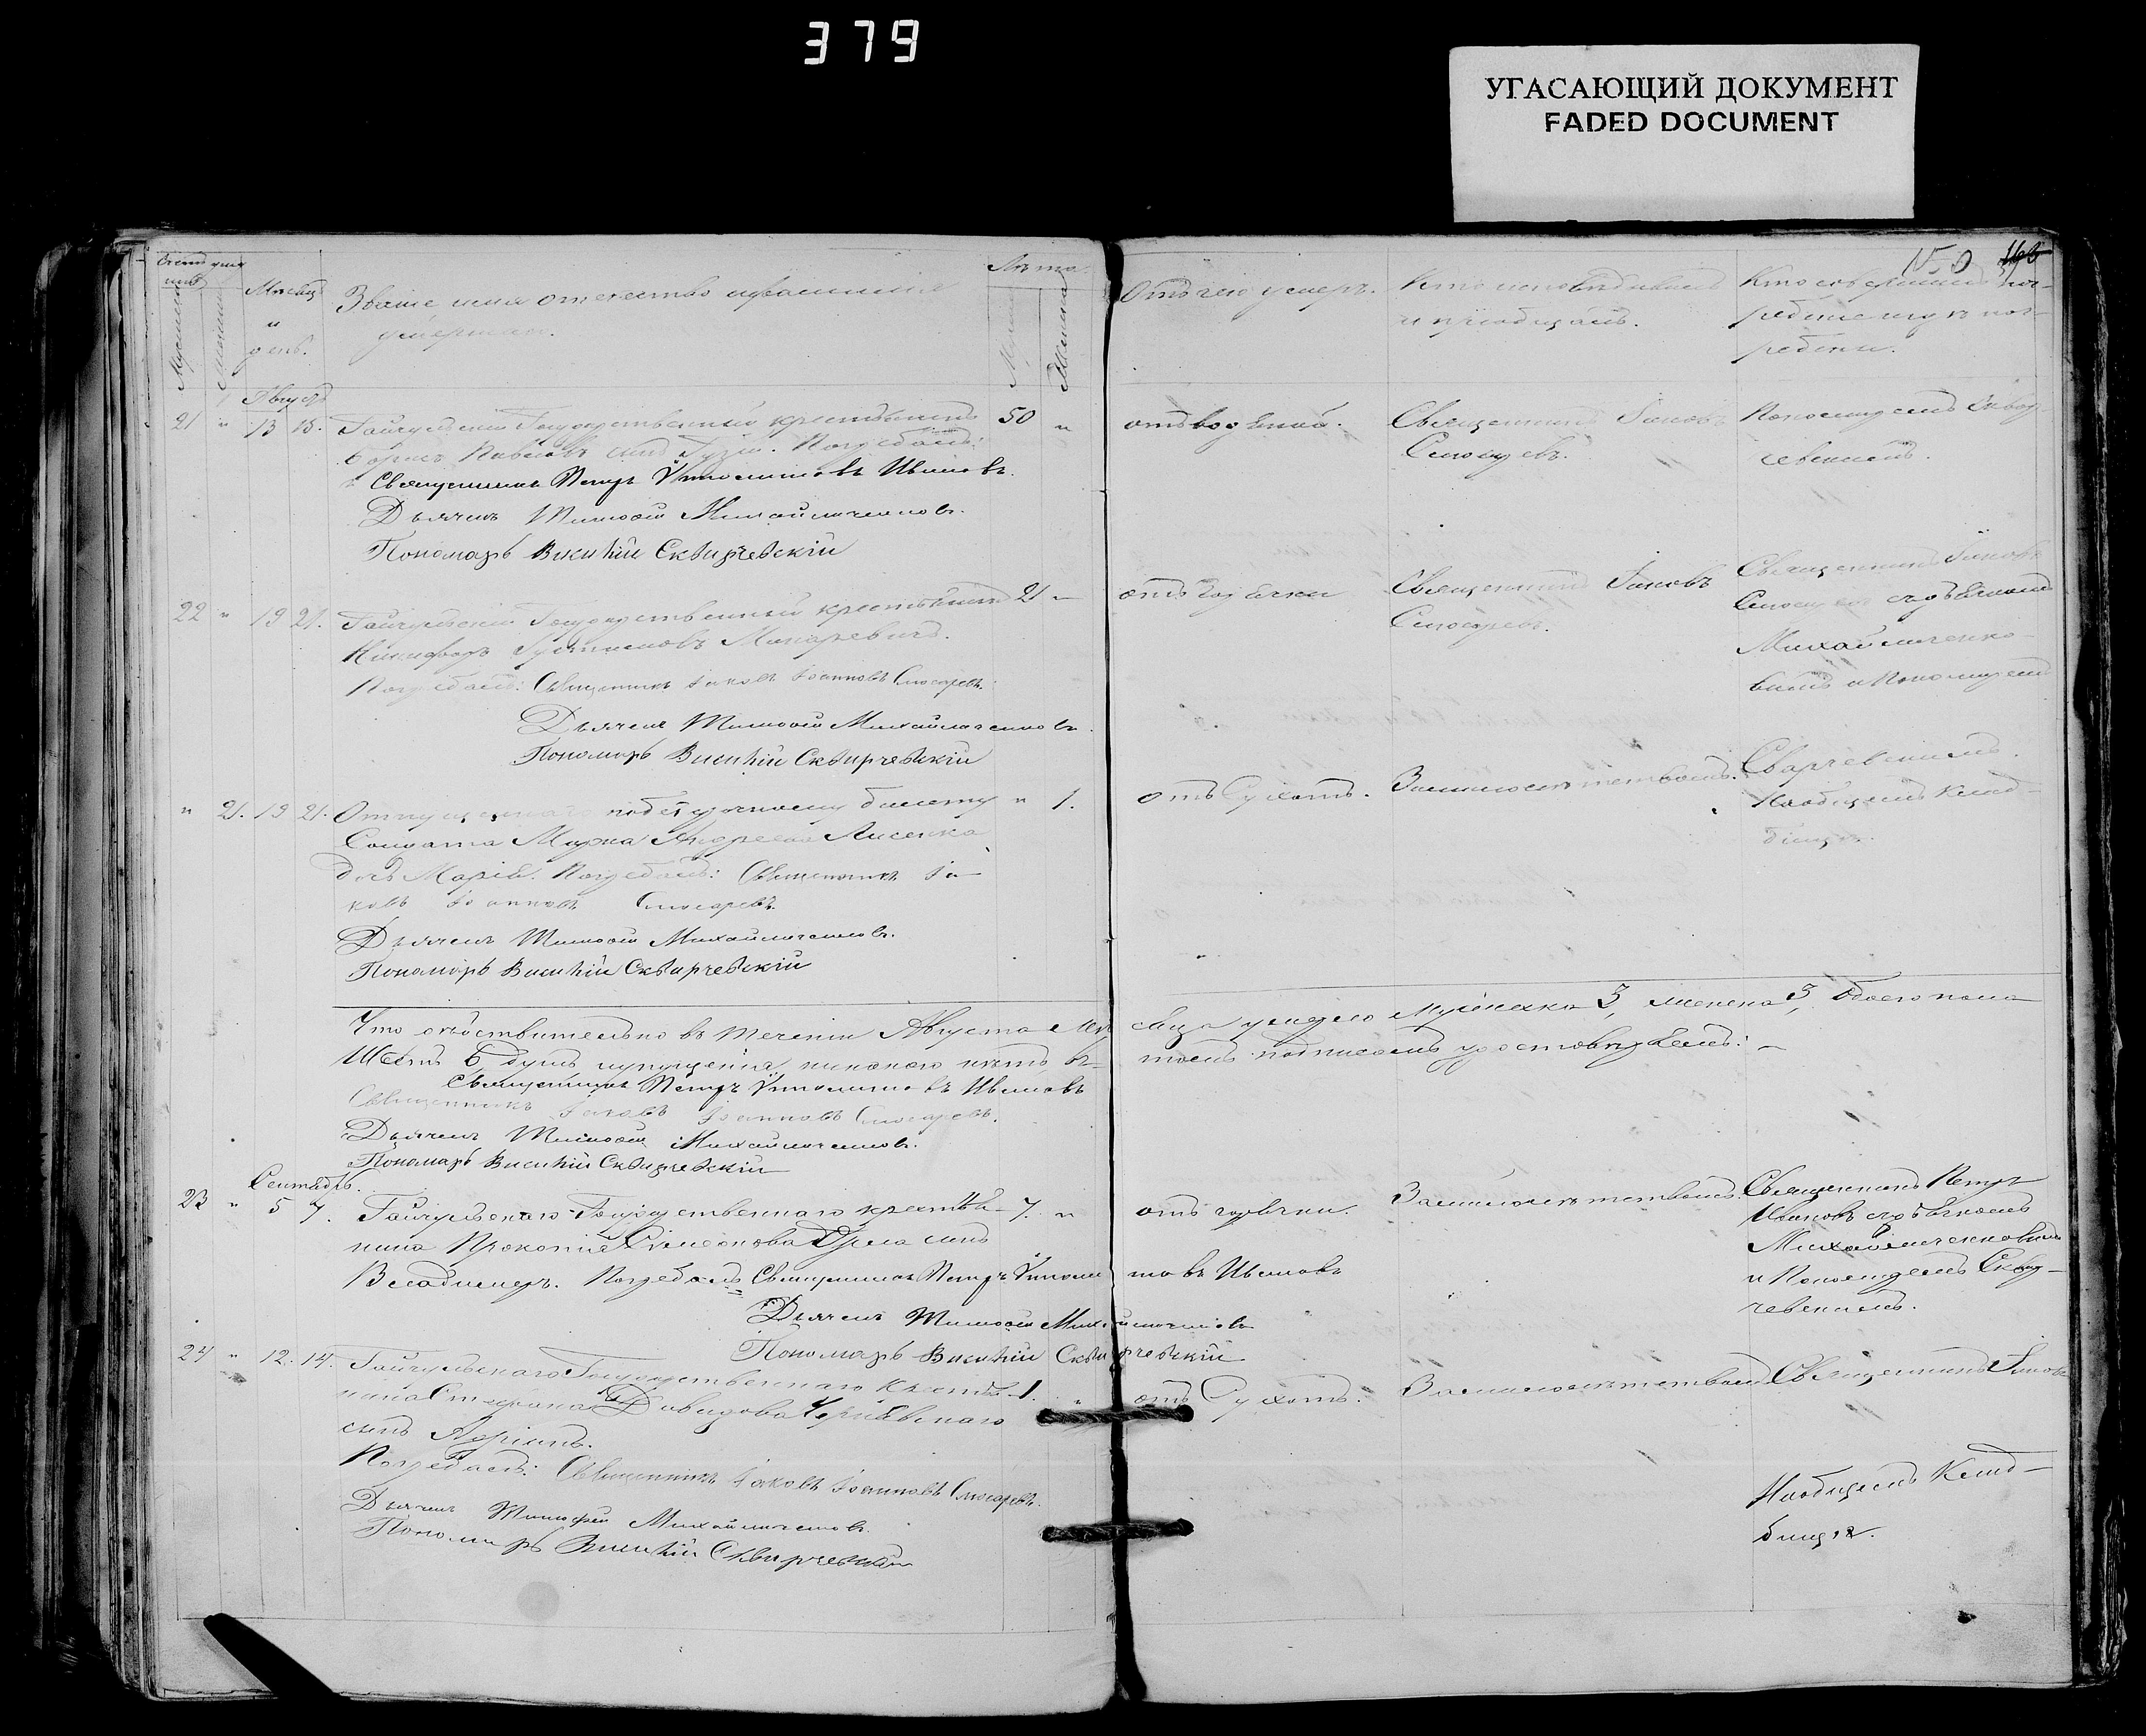 379
УГАСАЮЩИЙ ДОКУМЕНТ
FADED DOCUMENT
Мѣсяцъ
и
день.
Званіе, имя отчество и фамилія
умершаго.
Лѣта.
Отъ чего умеръ.
Кто исповѣдывалъ
и пріобщалъ.
Кто совершалъ по-
гребеніе и гдѣ пог-
ребены.
Августъ
21 " 13 15. Гайчульскій Государственный крестьянинъ 50 "
Борисъ Павловъ сынъ Погребалъ:
Священникъ Петръ Ивановъ.
Дьячекъ Тимофей Михайличенковъ.
Пономарь Василій Сквирчевскій
отъ водяной.
Священникъ Іаковъ
Слюсаревъ.
Пономаремъ Сквир-
чевскимъ.
22 " 19 21. Гайчульскій Государственный крестьянинъ 21 "
Никифоръ Макаревичъ.
Погребалъ: Священникъ Іаковъ Іоанновъ Слюсаревъ.
Дьячекъ Тимофей Михайличенковъ.
Пономарь Василій Сквирчевскій
отъ горячки
Священникъ Іаковъ
Слюсаревъ.
Священникъ Іаковъ
Слюсаревъ съ дьячкомъ
Михайличенко-
вымъ и Пономаремъ
Сквирчевскимъ.
На общемъ клад-
бищѣ.
" 21. 19 21. Отпущеннаго по безсрочному билету " 1.
Солдата Марка Андреева Лисенка
дочь Марія. Погребалъ: Священникъ Іа-
ковъ Іоанновъ Слюсаревъ.
Дьячекъ Тимофей Михайличенковъ.
Пономарь Василій Сквирчевскій
отъ Сухотъ.
За малолѣтствомъ.
Что дѣйствительно въ теченіи Августа мѣсяца умерло мужеска 3, женска 3, обоего пола
Шесть 6 душъ и пропущенія никакого нѣтъ въ томъ подписомъ удостовѣряемъ:
Священникъ Петръ Ивановъ
Священникъ Іаковъ Іоанновъ Слюсаревъ.
Дьячекъ Тимофей Михайличенковъ.
Пономарь Василій Сквирчевскій
Сентябрь.
23 " 5 7. Гайчульскаго Государственнаго крестья- 7. "
нина Прокопія Симеонова сынъ
Владимеръ. Погребалъ Священникъ Петръ Ивановъ
Дьячекъ Тимофей Михайличенковъ
Пономарь Василій Сквирчевскій
отъ горячки.
За малолѣтствомъ.
Священникъ Петръ
Ивановъ съ дьячкомъ
Михайличенковымъ
и Пономаремъ Сквир-
чевскимъ.
24 " 12. 14. Гайчульскаго Государственнаго крестья- 1. "
нина Стефана Давидова Чернявскаго
сынъ Адріанъ.
Погребалъ: Священникъ Іаковъ Іоанновъ Слюсаревъ.
Дьячекъ Тимофей Михайличенковъ.
Пономарь Василій Сквирчевскій
отъ Сухотъ.
За малолѣтствомъ
Священникъ Іаковъ
На общемъ клад-
бищѣ.